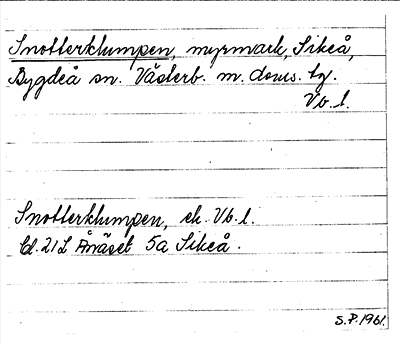 Snotterklumpen, myrmark, Sikeå,
Bygdeå sn. Västerb. m. doms. tg.
Vb. l.
Snotterklumpen, ek. Vb. l.
bl. 21 L Ånäset 5a Sikeå.
S.P. 1961.